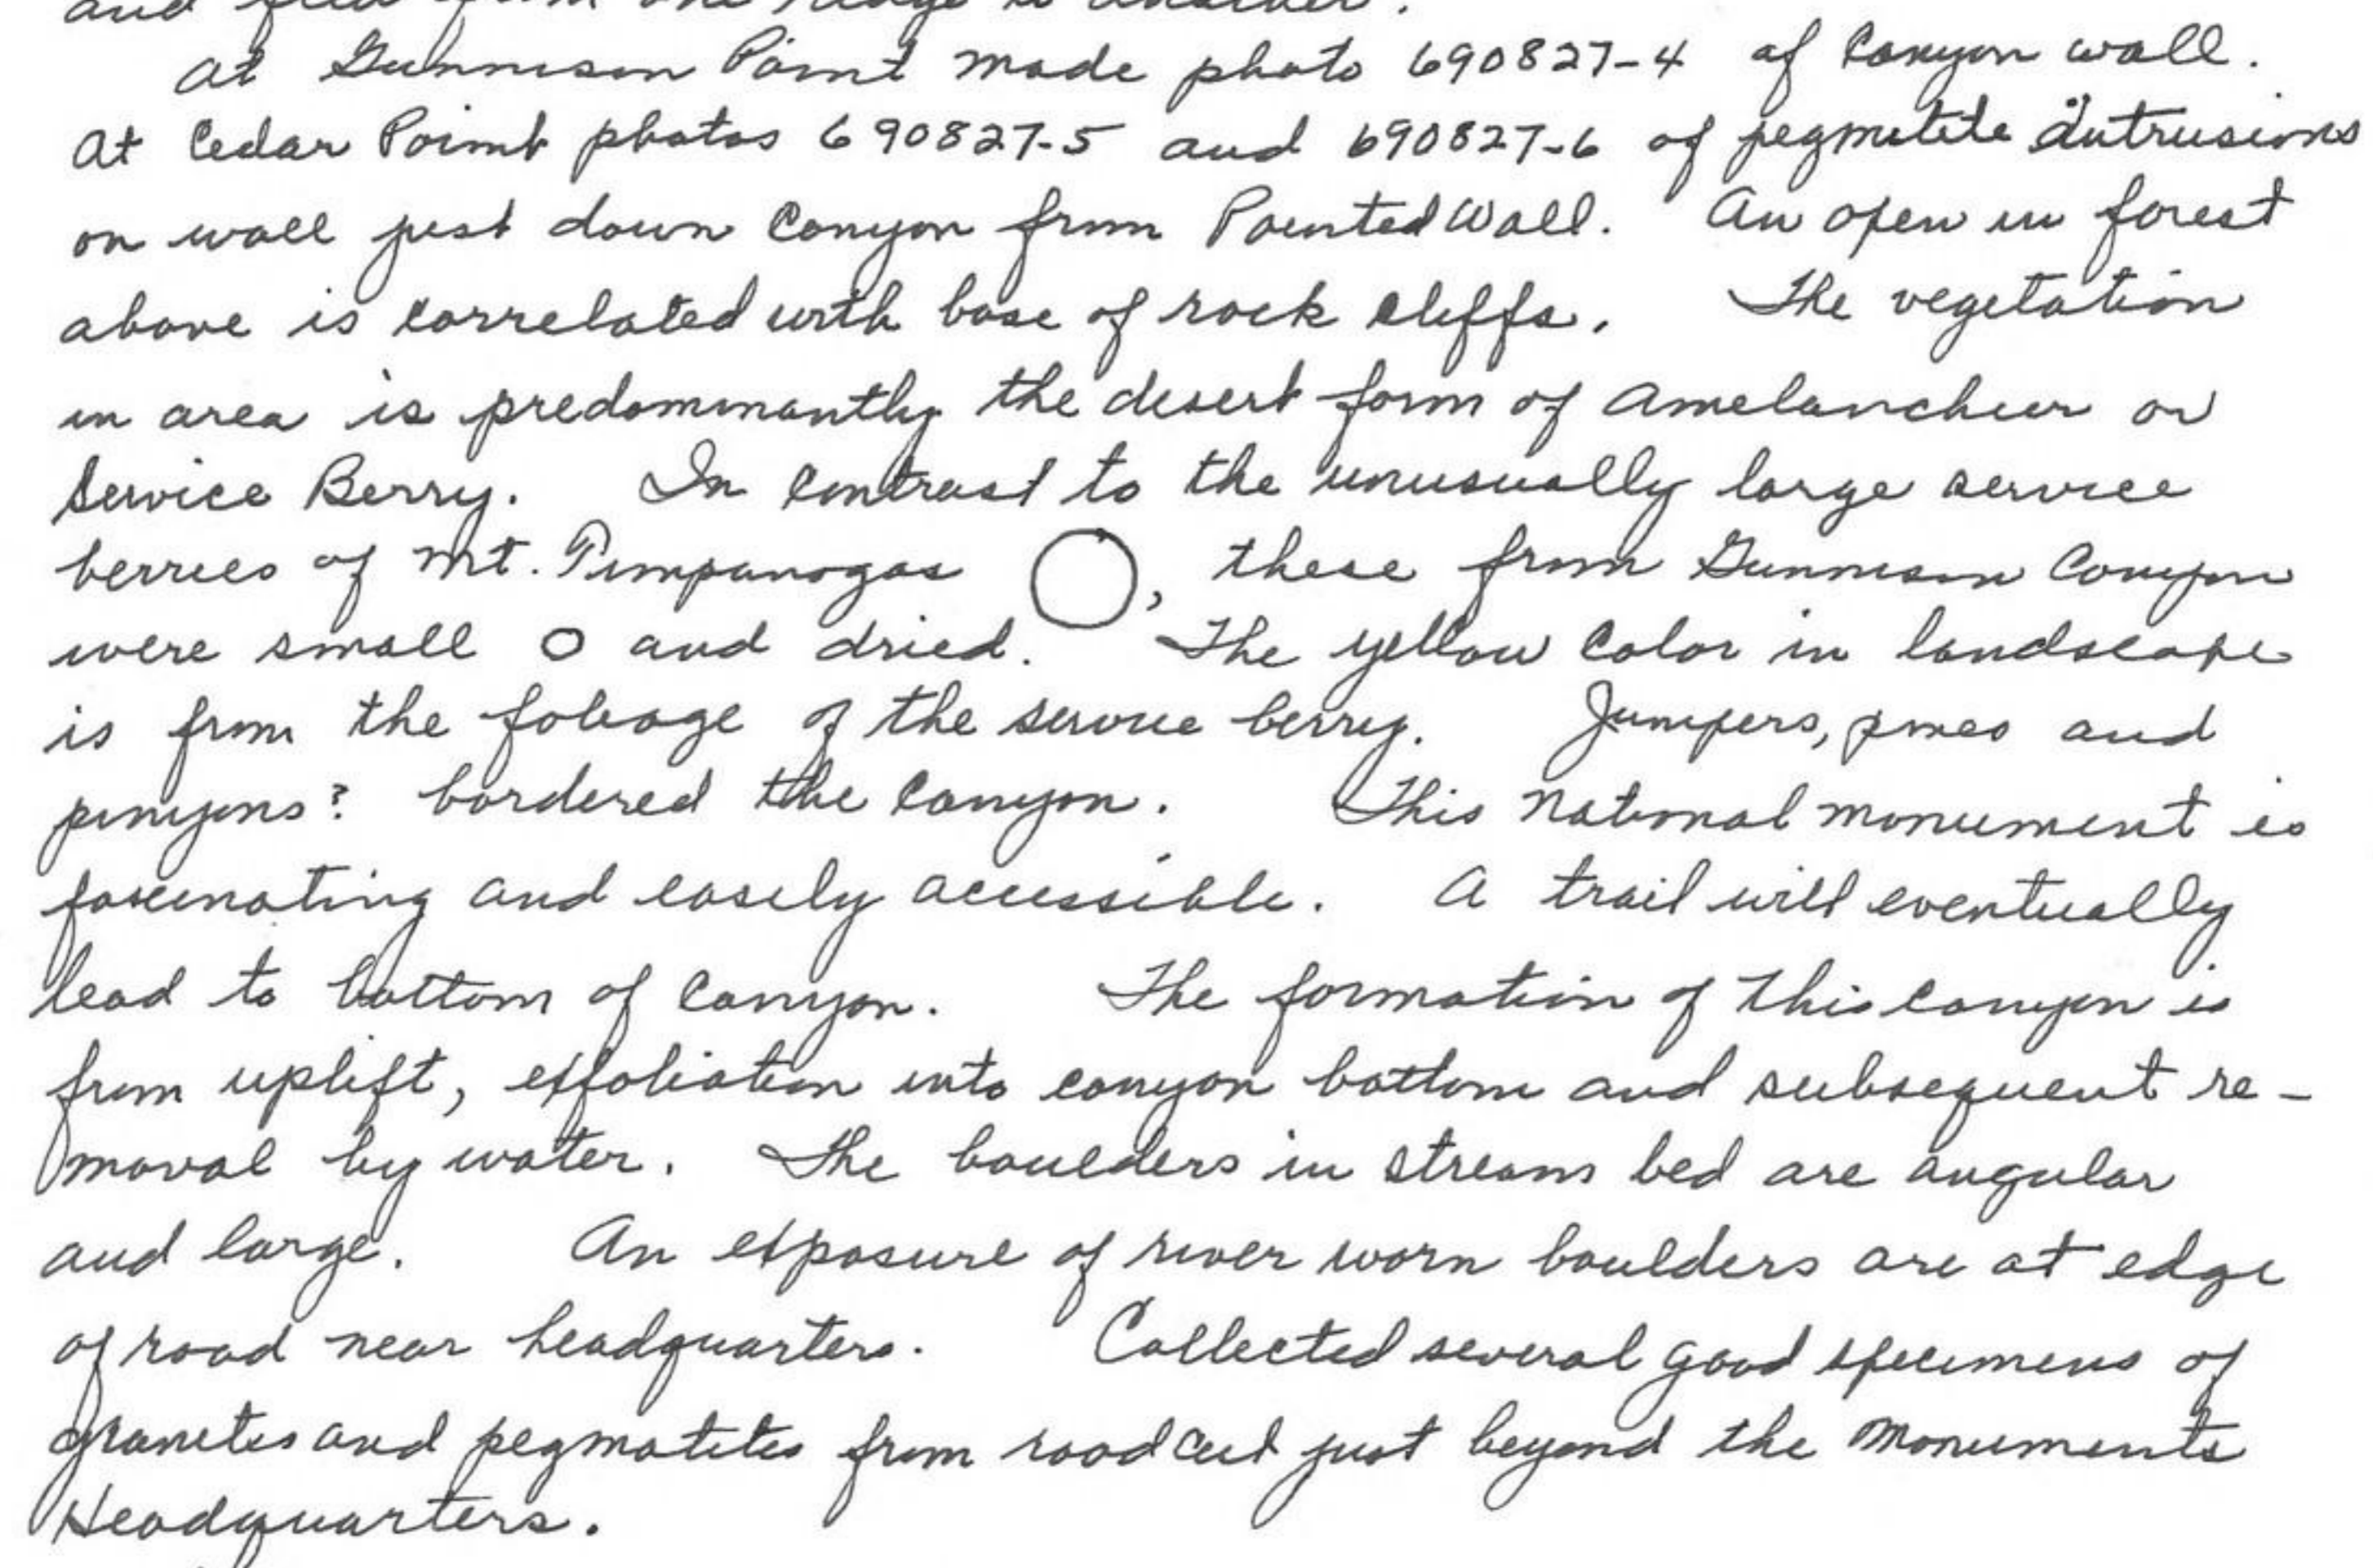 At Gunnison Point made photo 690827-4 of Canyon wall.
At Cedar Point photos 690827-5 and 690827-6 of pegmatite intrusions
on wall just down Canyon from Painted Wall. An open in forest
above is correlated with base of rock cliffs. The vegetation
in area is predominantly the desert form of Amelanchier or
Service Berry. In contrast to the unusually large service
berries of Mt. Timpanogas , these from Gunnison Canyon
were small and dried. The yellow color in landscape
is from the foliage of the service berry. Junipers, pines and
pinyons? bordered the Canyon. This National monument is
fascinating and easily accessible. A trail will eventually
lead to bottom of Canyon. The formation of this canyon is
from uplift, exfoliation into canyon bottom and subsequent re-
moval by water. The boulders in stream bed are angular
and large. An exposure of river worn boulders are at edge
of road near headquarters. Collected several good specimens of
granites and pegmatites from road cut just beyond the Monuments
Headquarters.